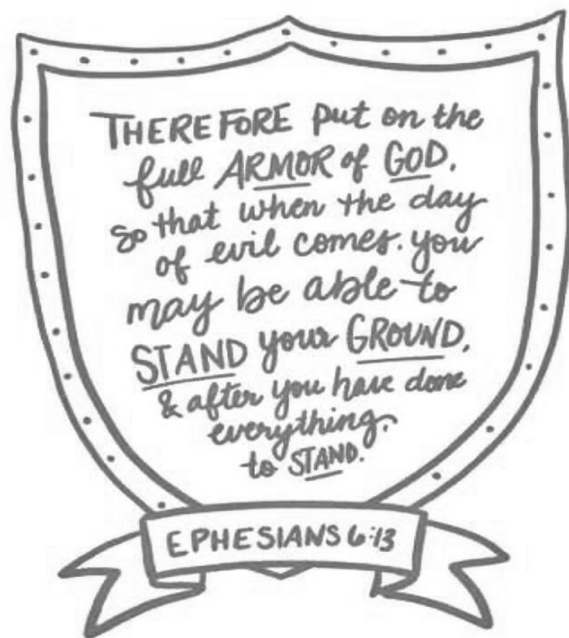 THEREFORE put on the
full ARMOR of GOD,
so that when the day
of evil comes, you
may be able to
STAND your GROUND,
& after you have done
everything,
to STAND.
EPHESIANS 6:13